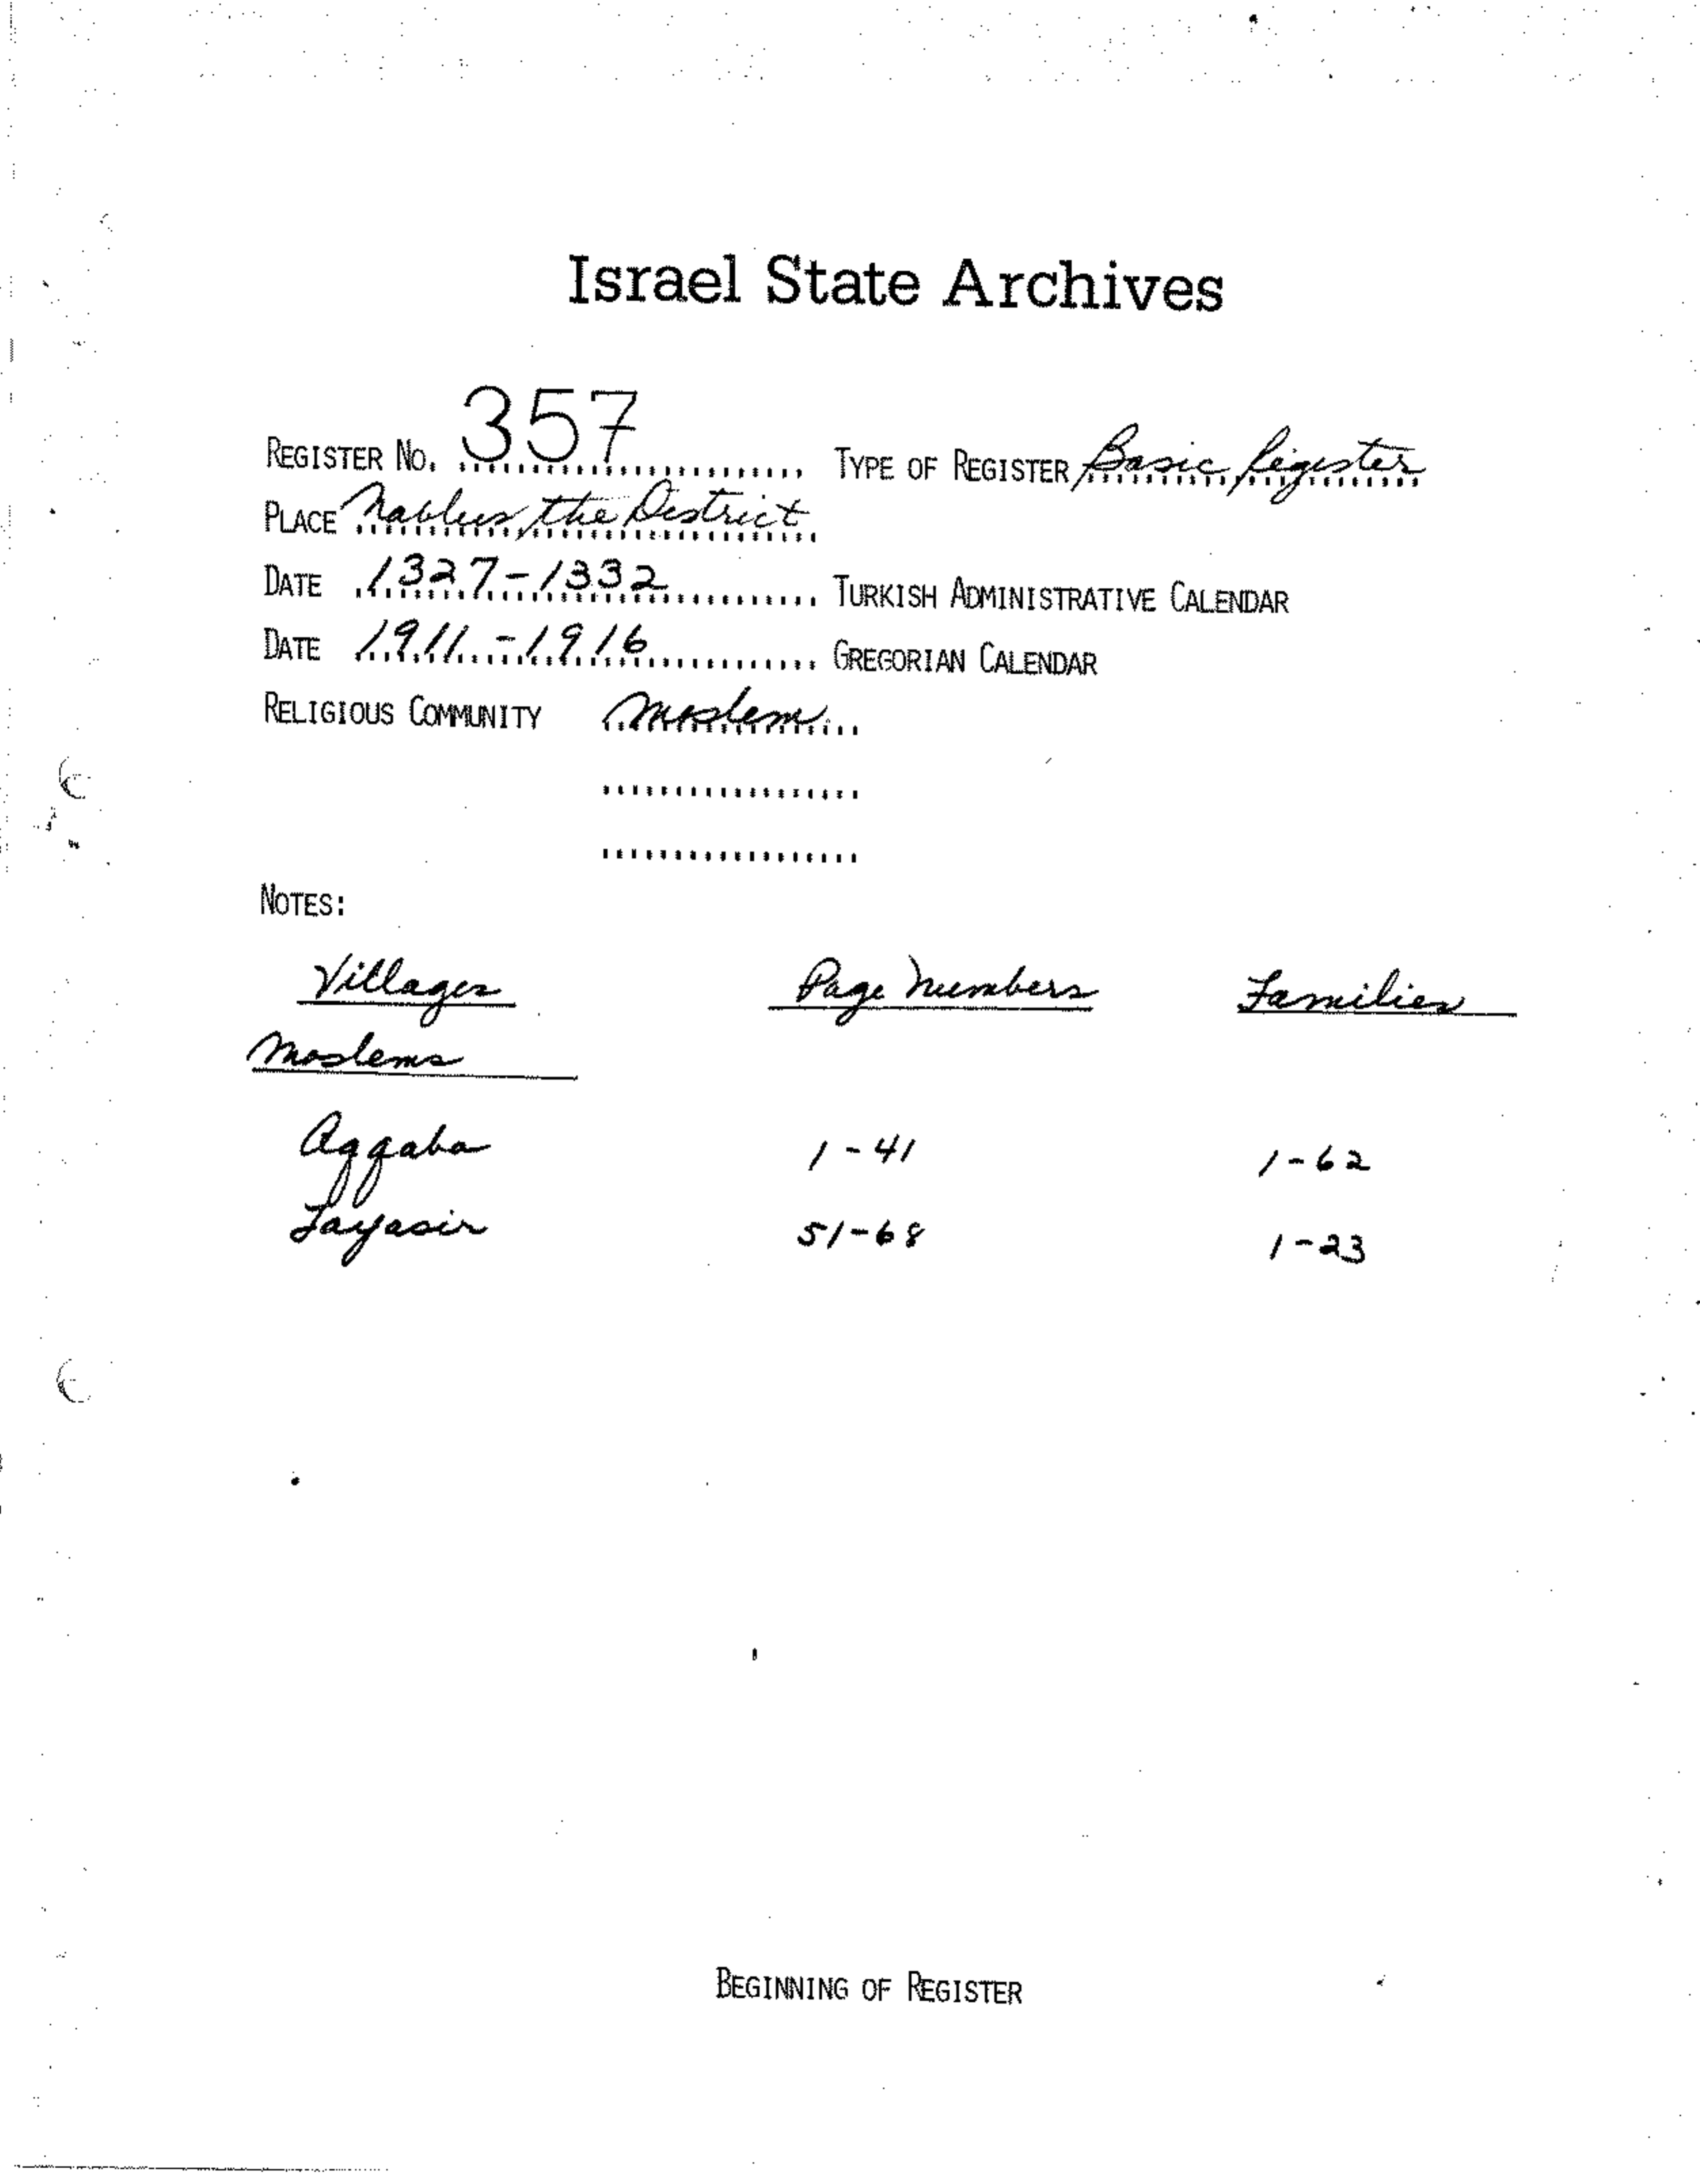 Israel State Archives
REGISTER NO. 357 TYPE OF REGISTER Basic Register
PLACE Nablus, the District
DATE 1327-1332 TURKISH ADMINISTRATIVE CALENDAR
DATE 1911-1916 GREGORIAN CALENDAR
RELIGIOUS COMMUNITY Moslem
NOTES:
Villages Page Numbers Families
Moslems
Aqqaba 1-41 1-62
Tayasir 51-68 1-23
BEGINNING OF REGISTER